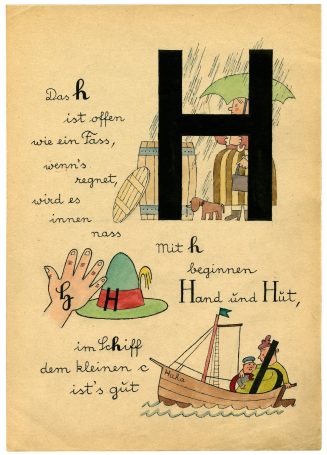 H
Das h
ist offen
wie ein Fass,
wenn's
regnet,
wird es
innen
nass
Mit h
beginnen
Hand und Hut,
h
H
im Schiff
dem kleinen c
ist's gut
h